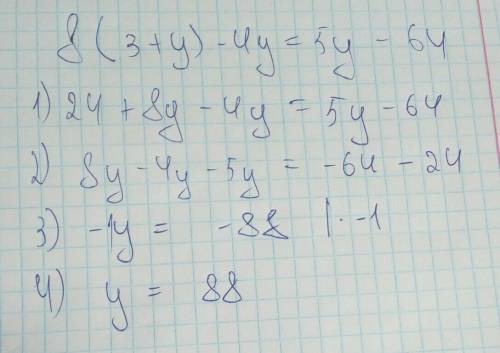 8(3+y)-4y=5y-64
1) 24+8y-4y=5y-64
2) 8y-4y-5y=-64-24
3) -1y=-88 |·-1
4) y=88